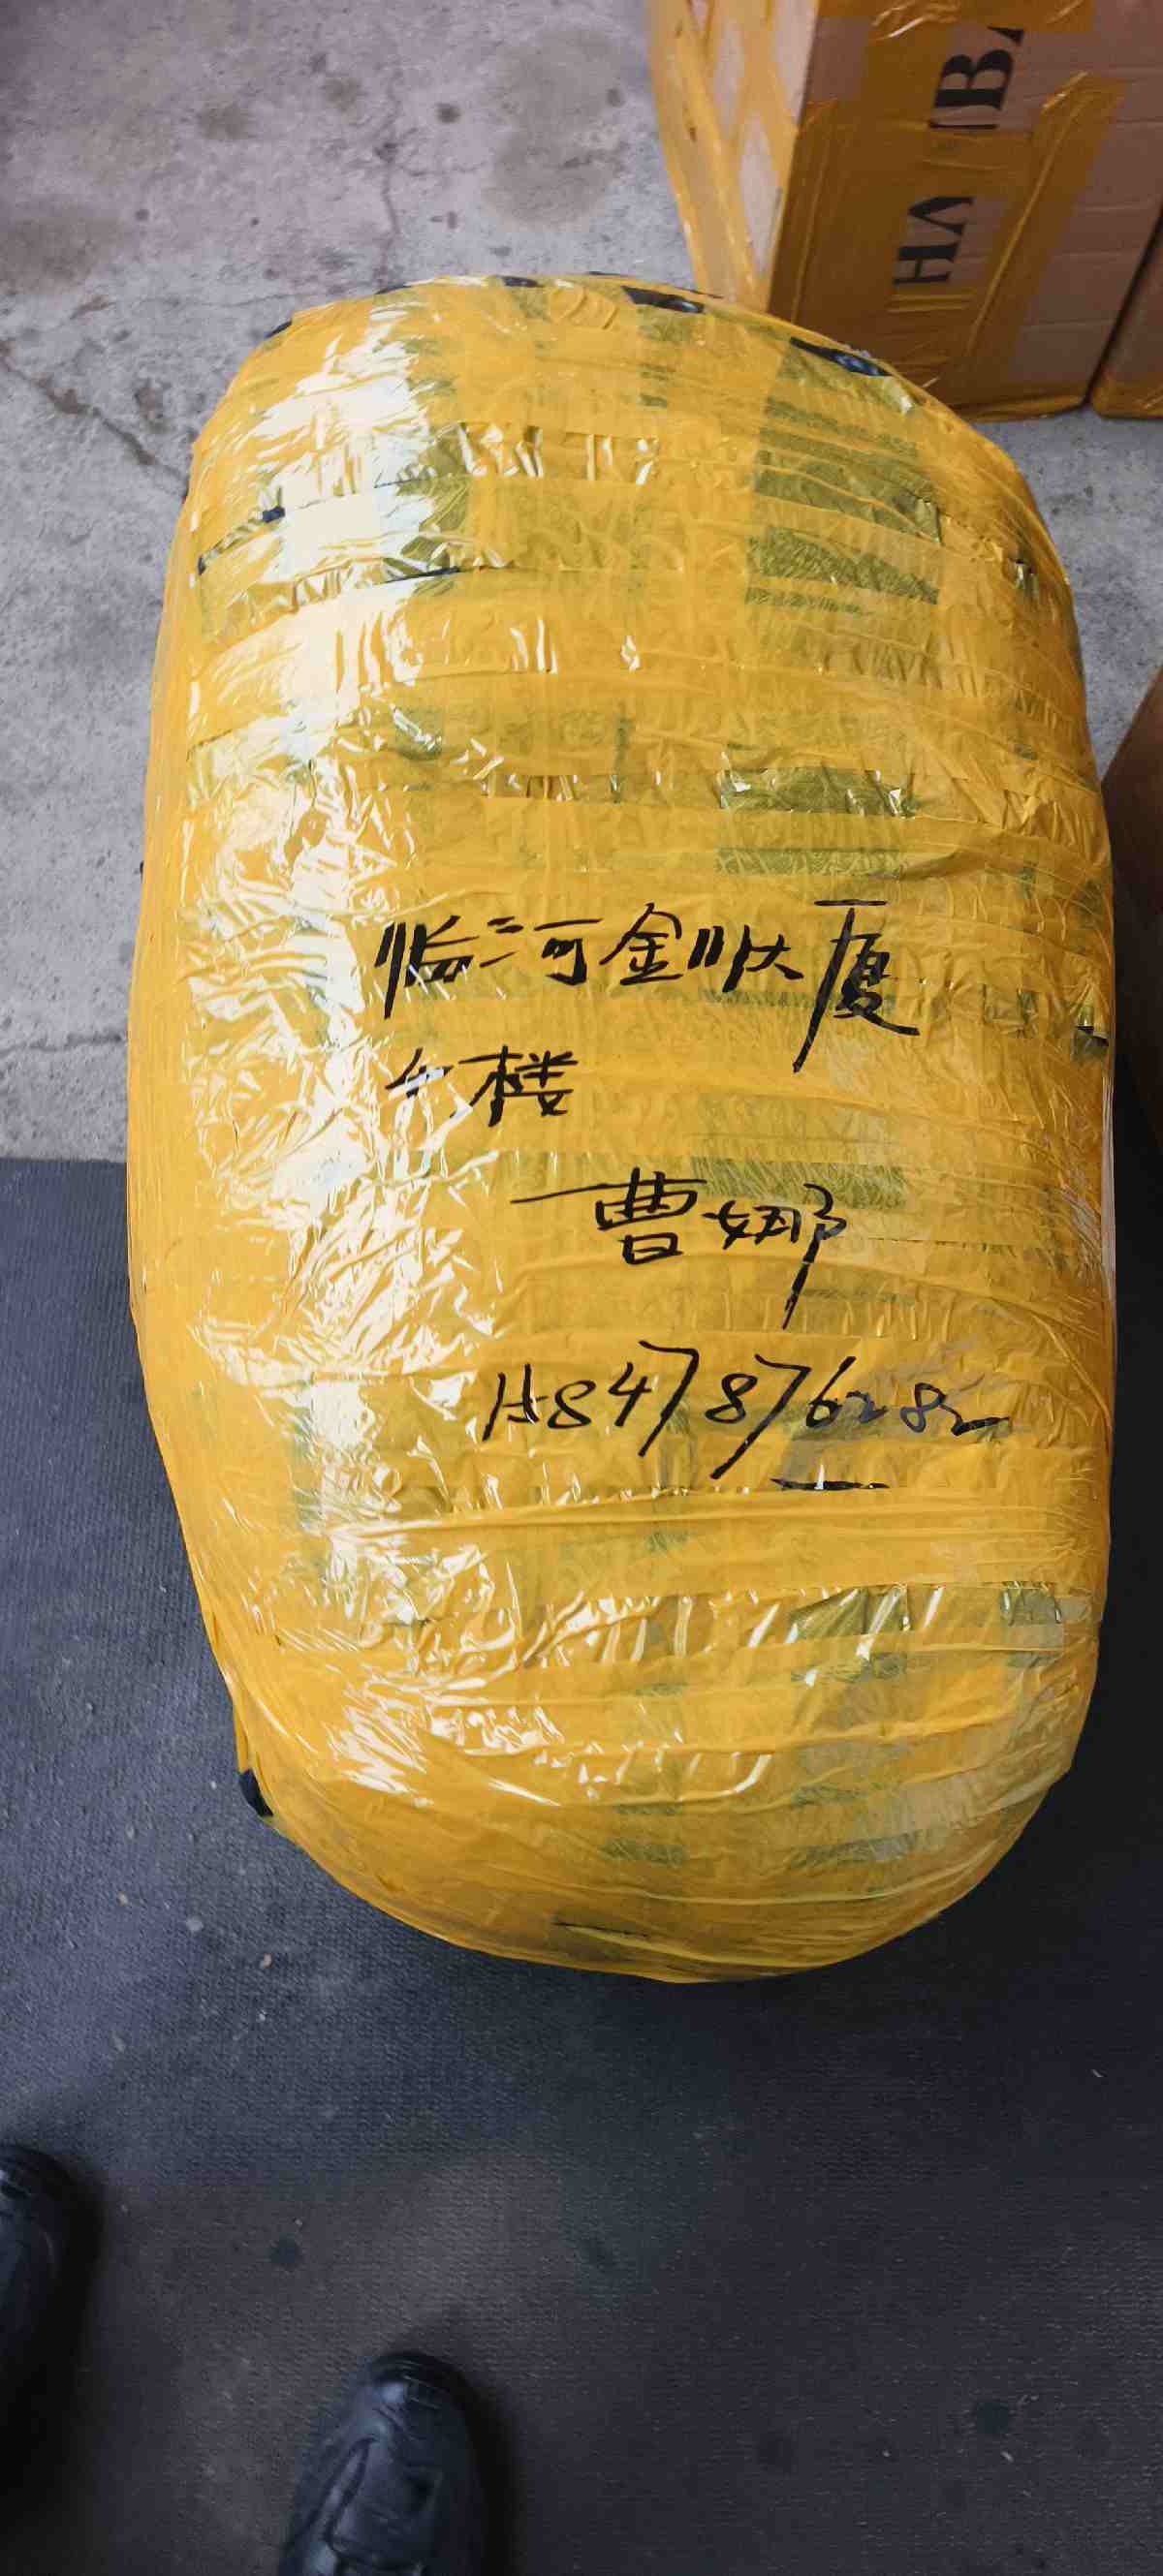 临河金川大厦
4楼
曹娜
1847876282
HA